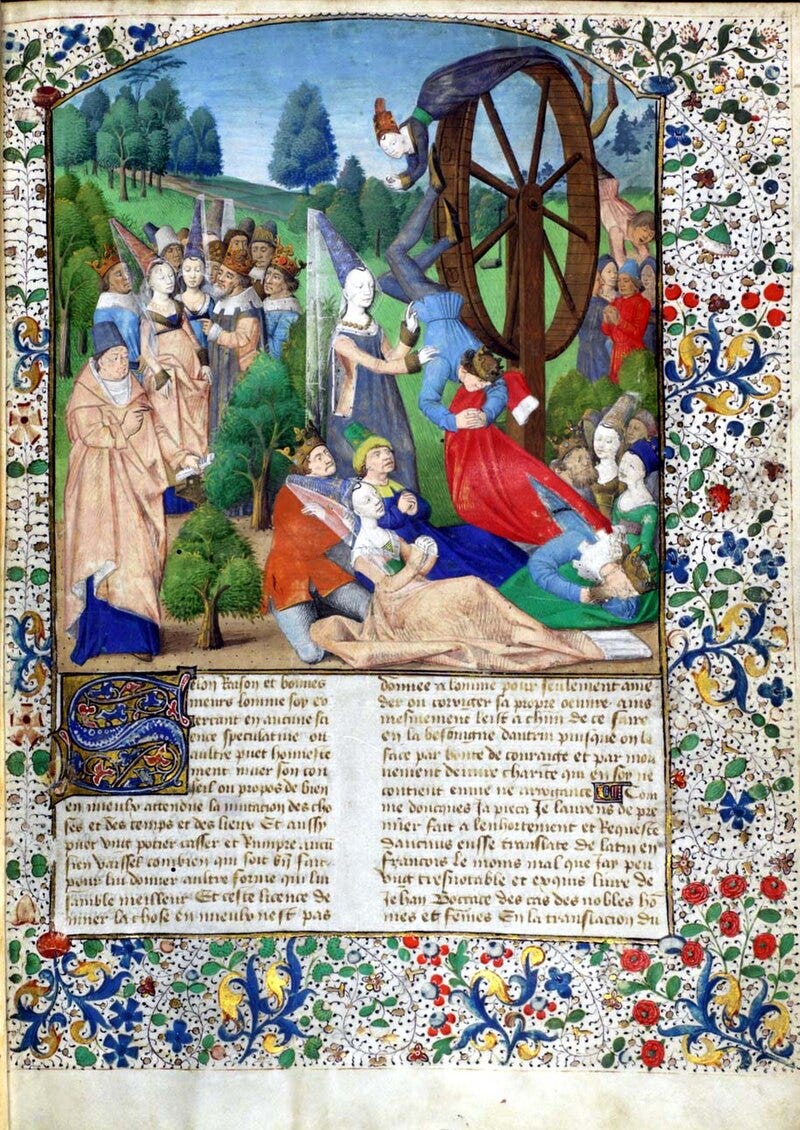 Selon Raison et bonnes
meurs lomme soy ex
ercant en aucune sci
ence speculatiue ou
aultre puet honneste
ment muer son con
seil ou propos de bien
en mieulx attendue la mutation des cho
ses et des temps et des lieux Et aussy
puet ung potier casser et Rompre aucu
sien vaissel combien quil soit bien fait
pour lui donner aultre forme qui lui
samble meilleur Et ceste licence de
muer la chose en mieulx nest pas
donnee a lomme pour seulement ame
der ou corrigier sa propre oeuure ams
mesmement leist a chun de ce faire
en la besoingne dautrui puisque on la
face par bonte de couraige et par mou
uement de vraie charite qui en soy ne
contient enuie ne arrogance Com
me doncques Ja pieca Je laurens de pre
mier fait a lenhortement et Requeste
daucuns eusse translate de latin en
francois le moins mal que Jay peu
ung tresnotable et exquis liure de
Jehan Boccace des cas des nobles ho
mes et femes En la translacion du